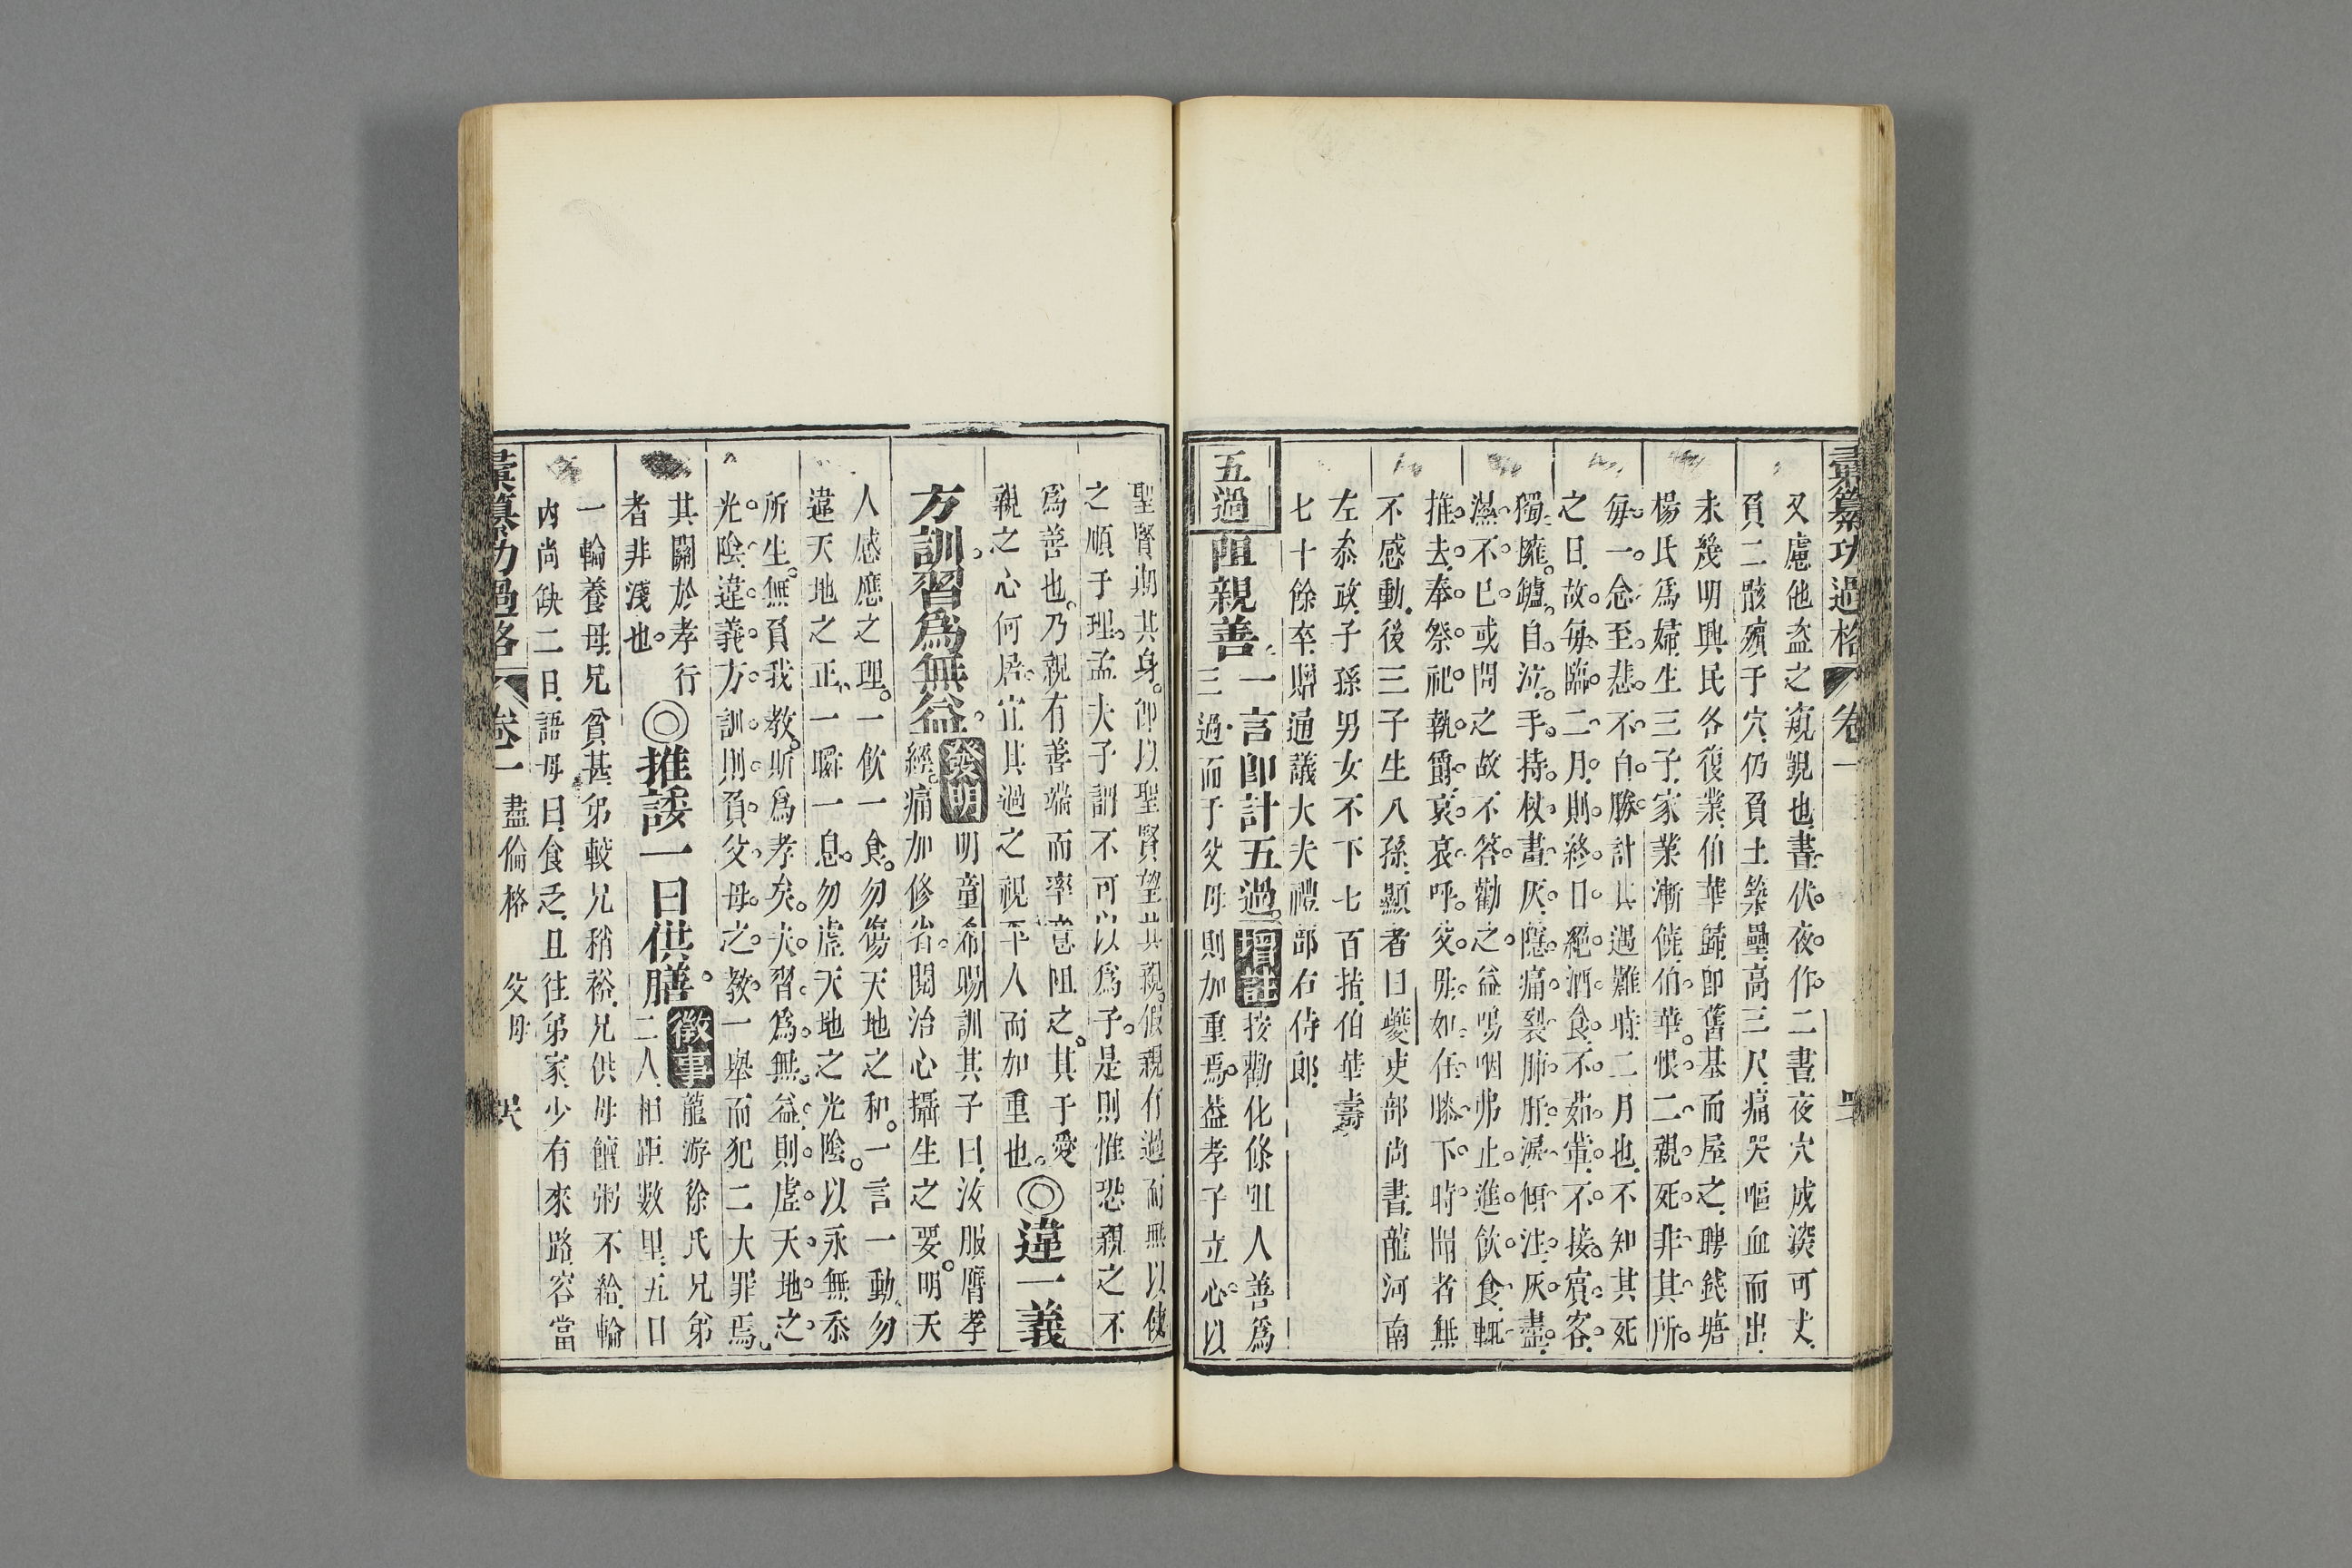 彙纂功過格 卷一
又慮他盜之窺覬也書伏夜作二晝夜穴成深可丈
負二骸殯于穴仍負土築壘高三尺痛哭嘔血而出
未幾明興民各復業伯華歸卽舊基而屋之聘錢塘
楊氏爲婦生三子家業漸饒伯華恨二親死非其所
每一念至悲不自勝計其遇難時二月也不知其死
之日故每臨二月則終日絕酒食不茹葷不接賓客
獨擁鑪自泣手持杖畫灰隱痛裂肺肝淚傾注灰盡
濕不已或問之故不答勸之益嗚咽弗止進飲食輒
推去奉祭祀執爵哀哀呼父母如在膝下時聞者無
不感動後三子生八孫顯者曰夔吏部尚書龍河南
左叅政子孫男女不下七百指伯華壽
七十餘卒贈通議大夫禮部右侍郎
五過 阻親善一言卽計五過 增註 按勸化條阻人善爲
三過而于父母則加重焉益孝子立心以
聖賢期其身卽以聖賢望其親假親有過而無以使
之順于理孟夫子謂不可以爲子是則惟恐親之不
爲善也乃親有善端而率意阻之其于愛
親之心何居宜其過之視平人而加重也 ◎違一義
方訓習爲無益 發明 明童希賜訓其子曰汝服膺孝
經痛加修省閱治心攝生之要明天
人感應之理一飲一食勿傷天地之和一言一動勿
違天地之正一瞬一息勿虛天地之光陰以永無忝
所生無負我教斯爲孝矣夫習爲無益則虛天地之
光陰違義方訓則負父母之教一舉而犯二大罪焉
其關於孝行
者非淺也 ◎推諉一日供膳 徵事 龍游徐氏兄弟
二人相距數里五日
一輪養母兄貧甚弟較兄稍裕兄供母饘粥不給輪
內尚缺二日語母曰食乏且往弟家少有來路容當
彙纂功過格 卷一 盡倫格 父母